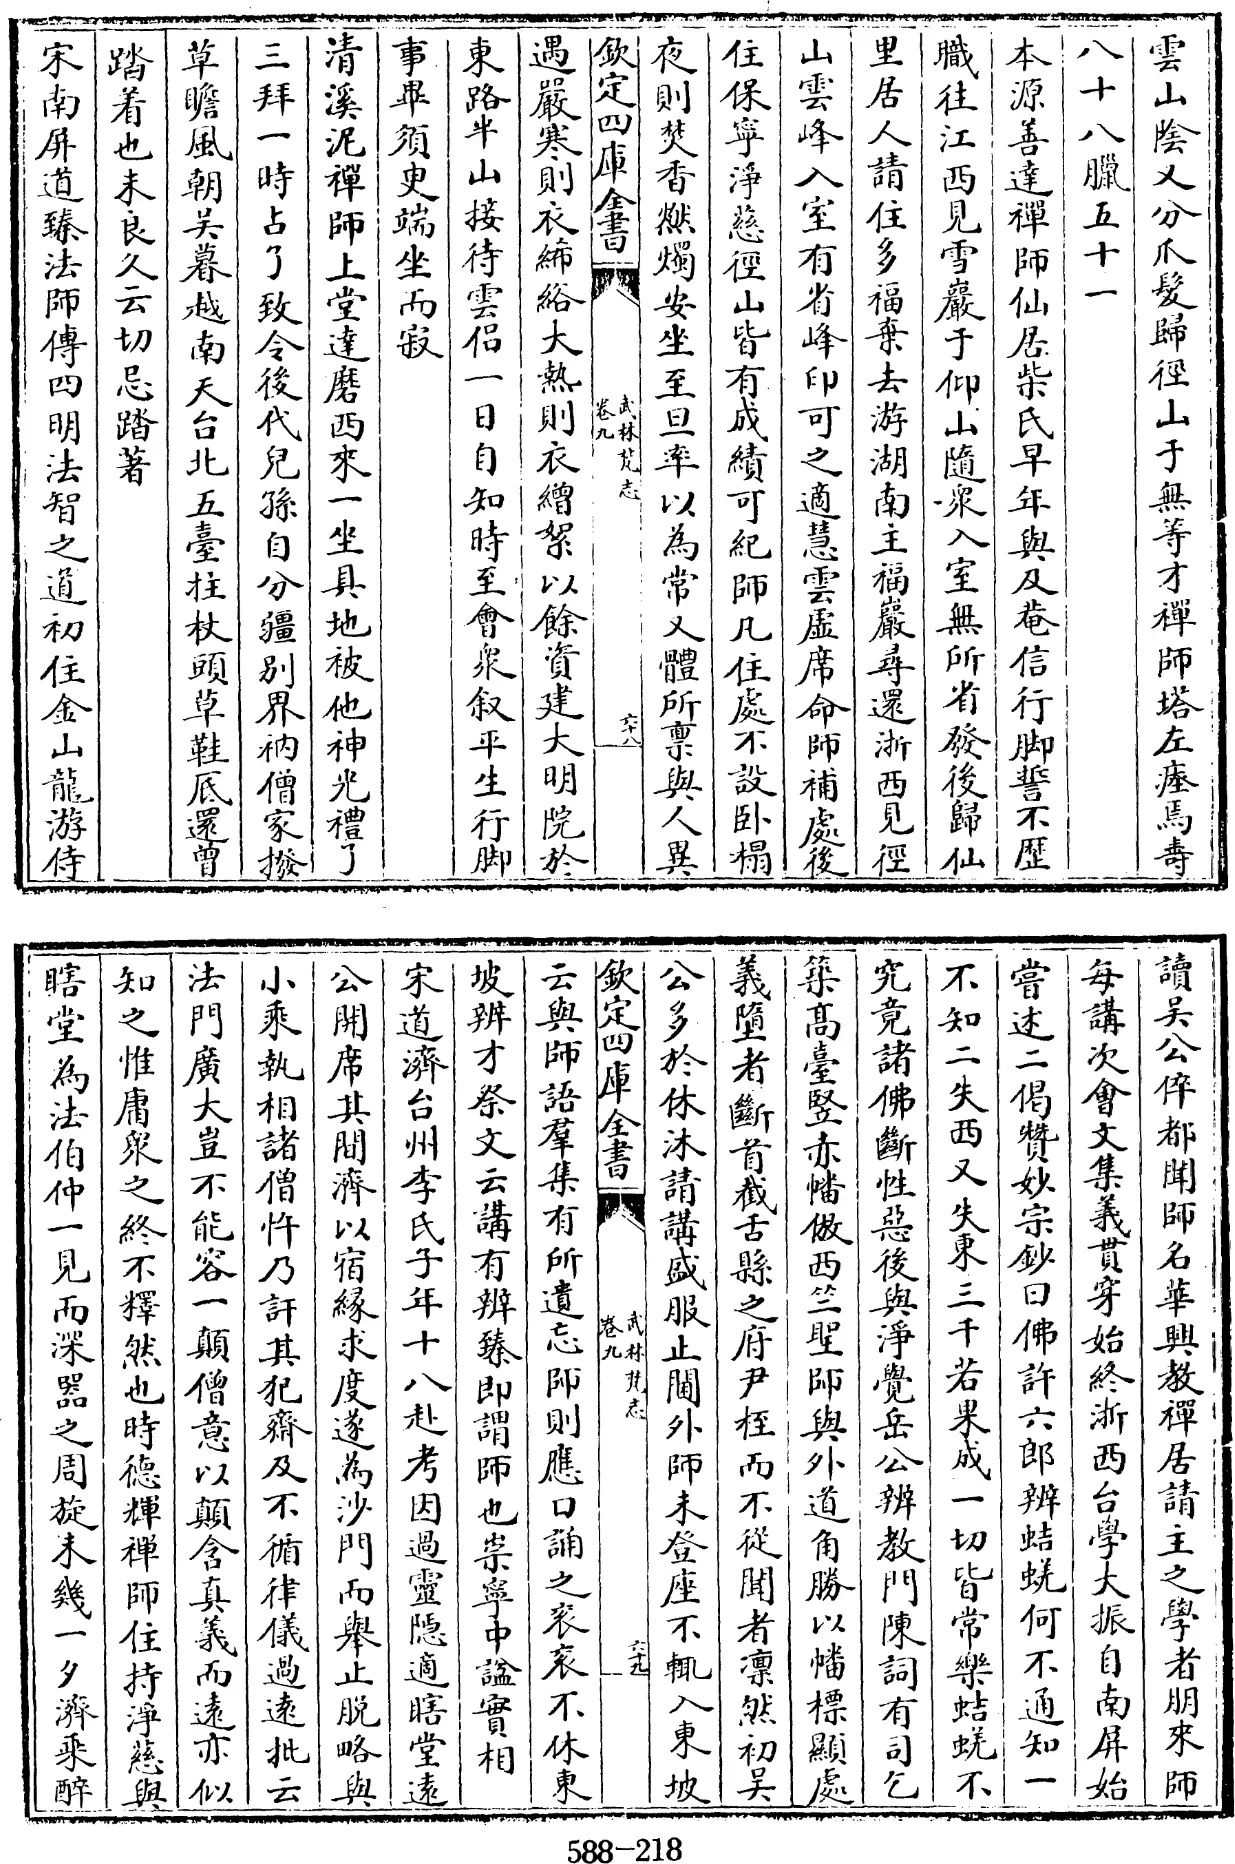 雲山陰又分爪髮歸徑山于無等才禪師塔左瘞焉壽
八十八臘五十一
本源善達禪師仙居柴氏早年與及菴信行脚誓不歷
職往江西見雪巖于仰山隨衆入室無所省發後歸仙
里居人請住多福棄去游湖南主福巖尋還浙西見徑
山雲峰入室有省峰印可之適慧雲虛席命師補處後
住保寧淨慈徑山皆有成績可紀師凡住處不設卧榻
夜則焚香燃燭安坐至旦率以為常又體所禀與人異
欽定四庫全書
武林梵志
卷九
六十八
遇嚴寒則衣絺綌大熱則衣繒絮以餘資建大明院於
東路半山接待雲侣一日自知時至會衆叙平生行脚
事畢須臾端坐而寂
清溪泥禪師上堂達磨西來一坐具地被他神光禮了
三拜一時占了致令後代兒孫自分疆别界衲僧家撥
草瞻風朝吴暮越南天台北五臺柱杖頭草鞋底還曾
踏着也未良久云切忌踏著
宋南屏道臻法師傳四明法智之道初住金山龍游侍
讀吴公倅都聞師名華興教禪居請主之學者朋來師
每講次會文集義貫穿始終浙西台學大振自南屏始
嘗述二偈贊妙宗鈔曰佛許六郎辨蛣蜣何不通知一
不知二失西又失東三千若果成一切皆常樂蛣蜣不
究竟諸佛斷性惡後與淨覺岳公辨教門陳詞有司乞
築高臺竪赤幡倣西竺聖師與外道角勝以幡標顯處
義墮者斷首截舌縣之府尹桎而不從聞者凛然初吴
公多於休沐請講盛服止閫外師未登座不輒入東坡
欽定四庫全書
武林梵志
卷九
六十九
云與師語羣集有所遺忘師則應口誦之衮衮不休東
坡辨才祭文云講有辨臻即謂師也崇寧中諡實相
宋道濟台州李氏子年十八赴考因過靈隱適瞎堂遠
公開席其間濟以宿緣求度遂為沙門而舉止脱略與
小乘執相諸僧忤乃訐其犯齋及不循律儀過遠批云
法門廣大豈不能容一顛僧意以顛含真義而遠亦似
知之惟庸衆之終不釋然也時德輝禪師住持淨慈與
瞎堂為法伯仲一見而深器之周旋未幾一夕濟乘醉
588-218